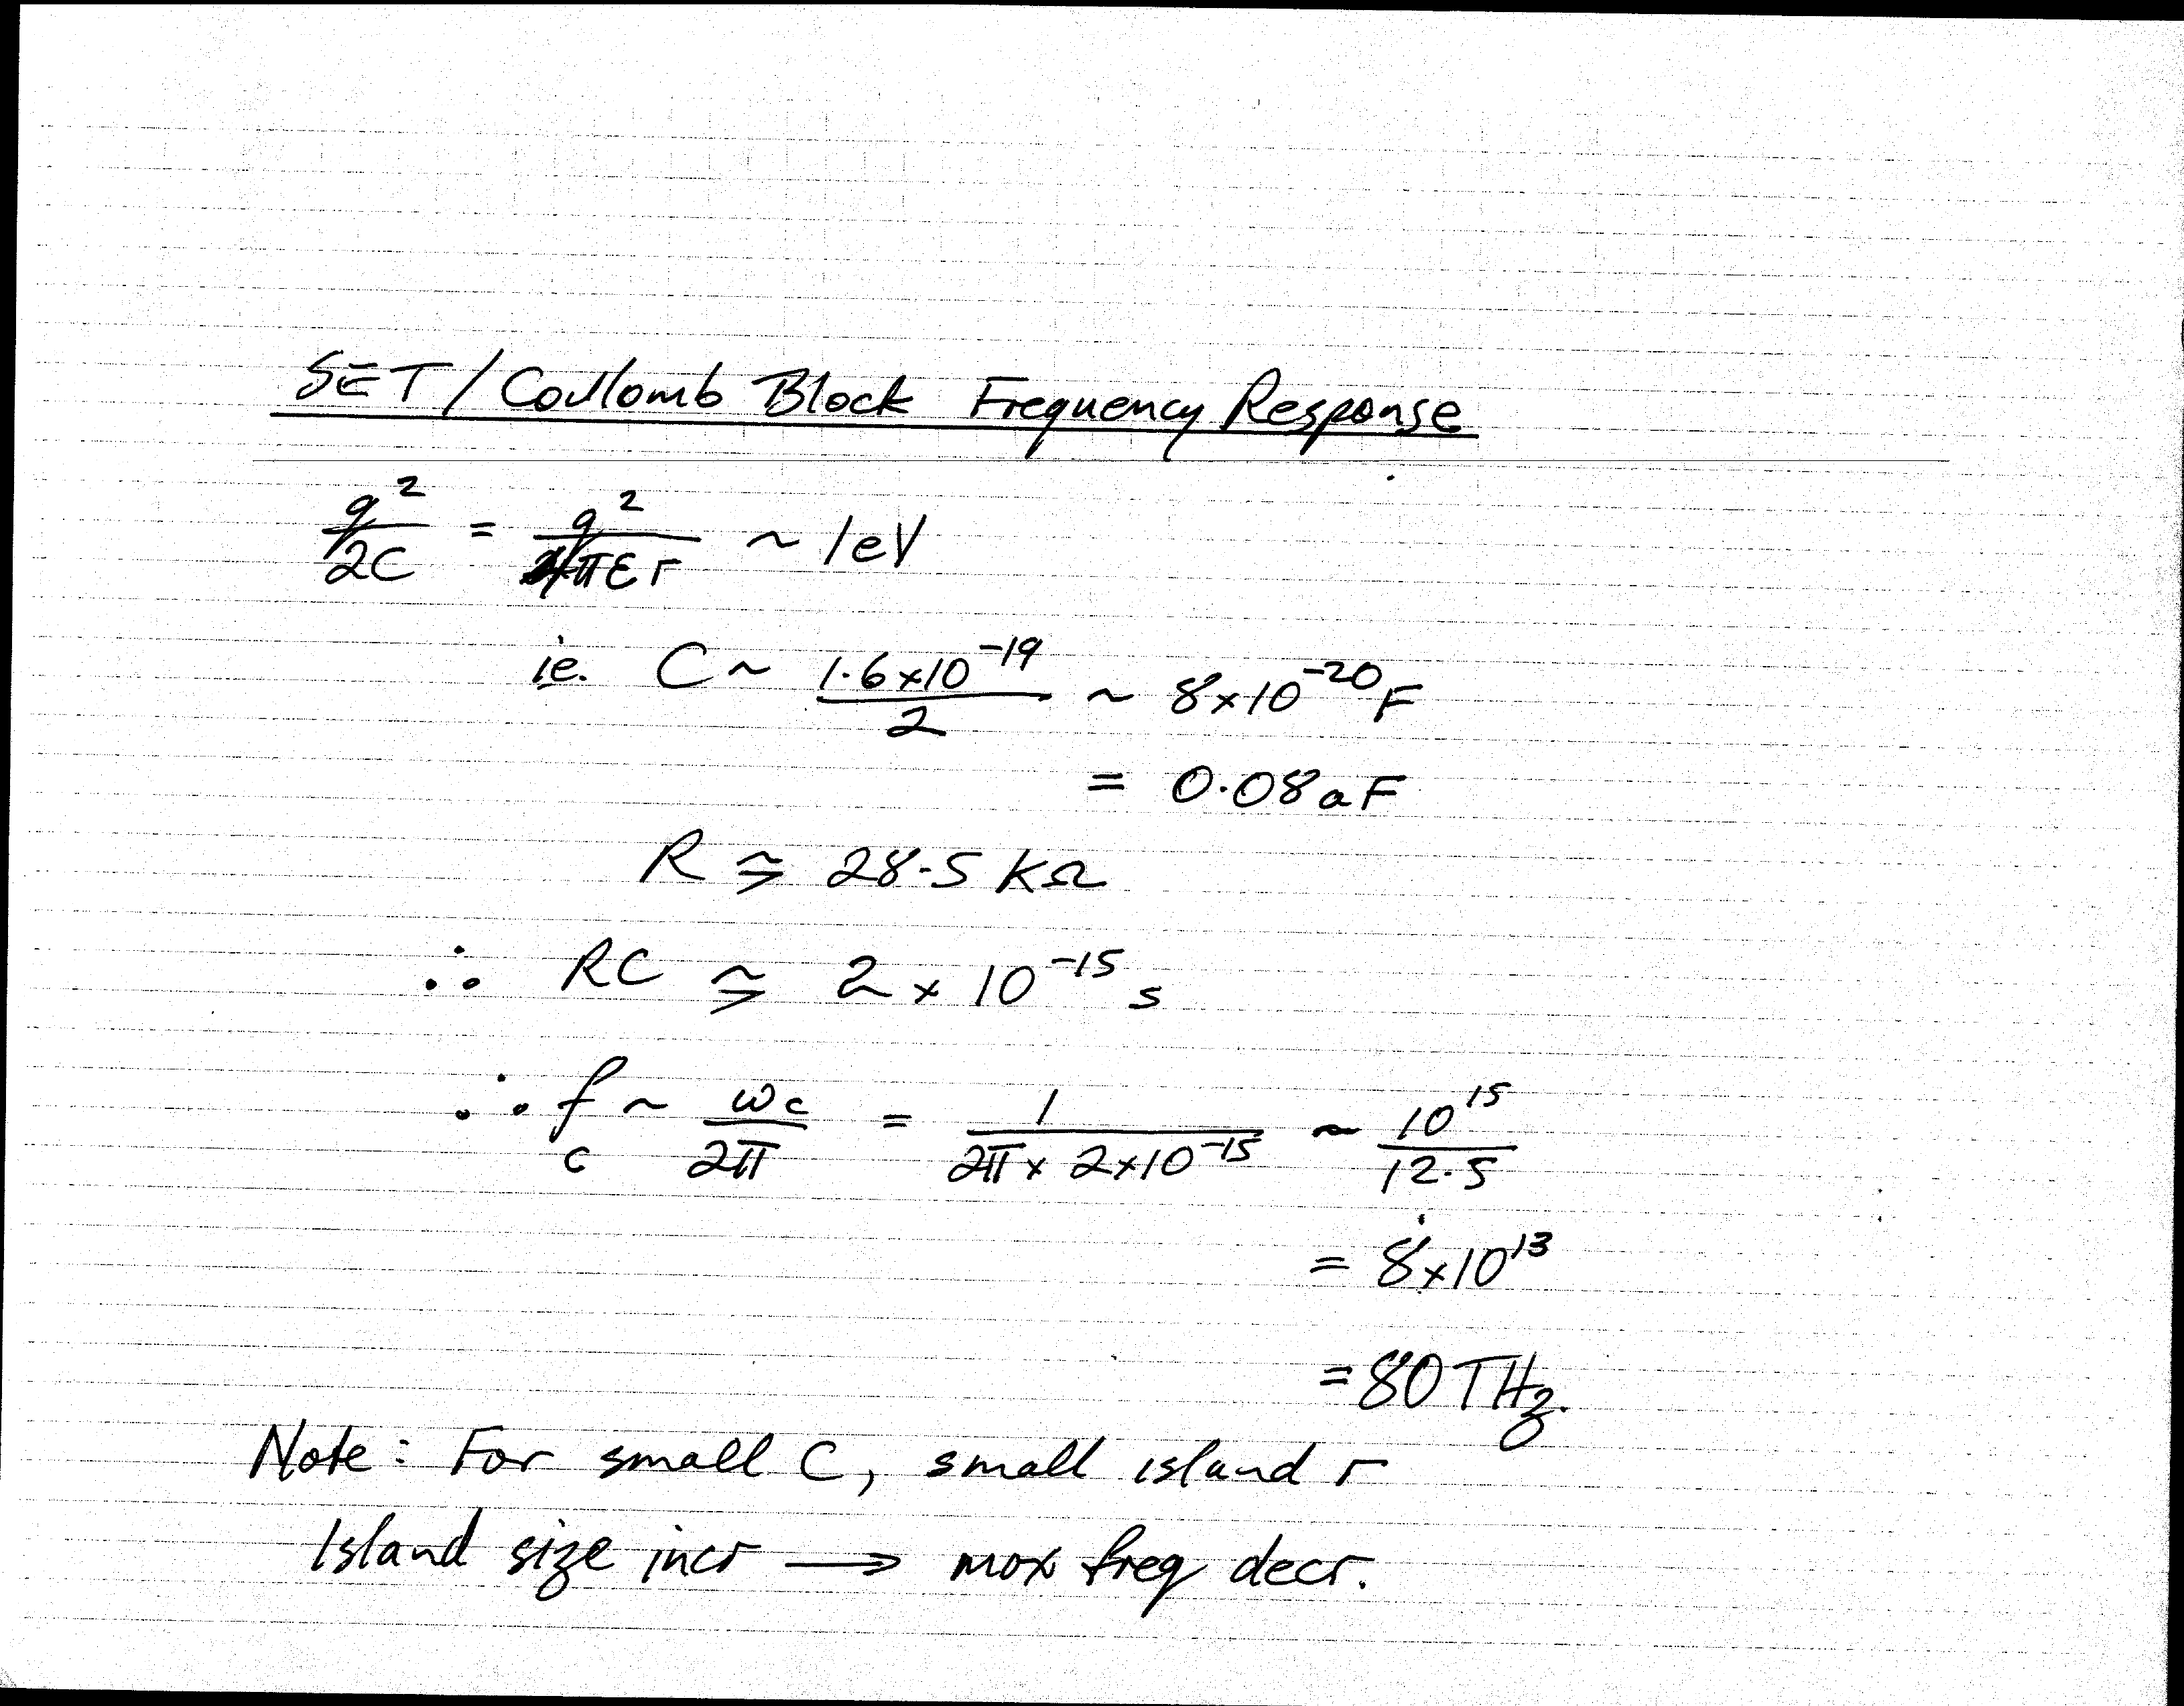 SET / Coulomb Block Frequency Response
q²/2C = q²/πεr ~ 1eV
ie. C ~ 1.6×10⁻¹⁹/2 ~ 8×10⁻²⁰ F
= 0.08aF
R ⪎ 28.5 KΩ
∴ RC ⪎ 2 × 10⁻¹⁵ s
∴ f_c ~ ωc/2π = 1/2π × 2×10⁻¹⁵ ~ 10¹⁵/12.5
= 8×10¹³
= 80 THz.
Note: For small C, small island r
Island size incr → max freq decr.